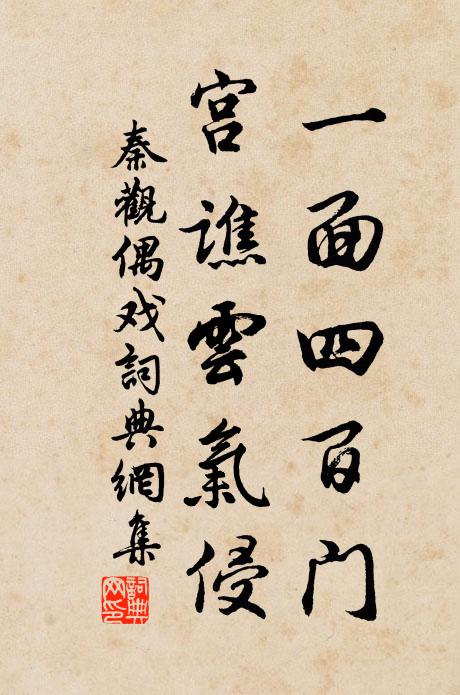 一面四百门
宫譙雲氣侵
秦觀偶戏詞典網集
詞典